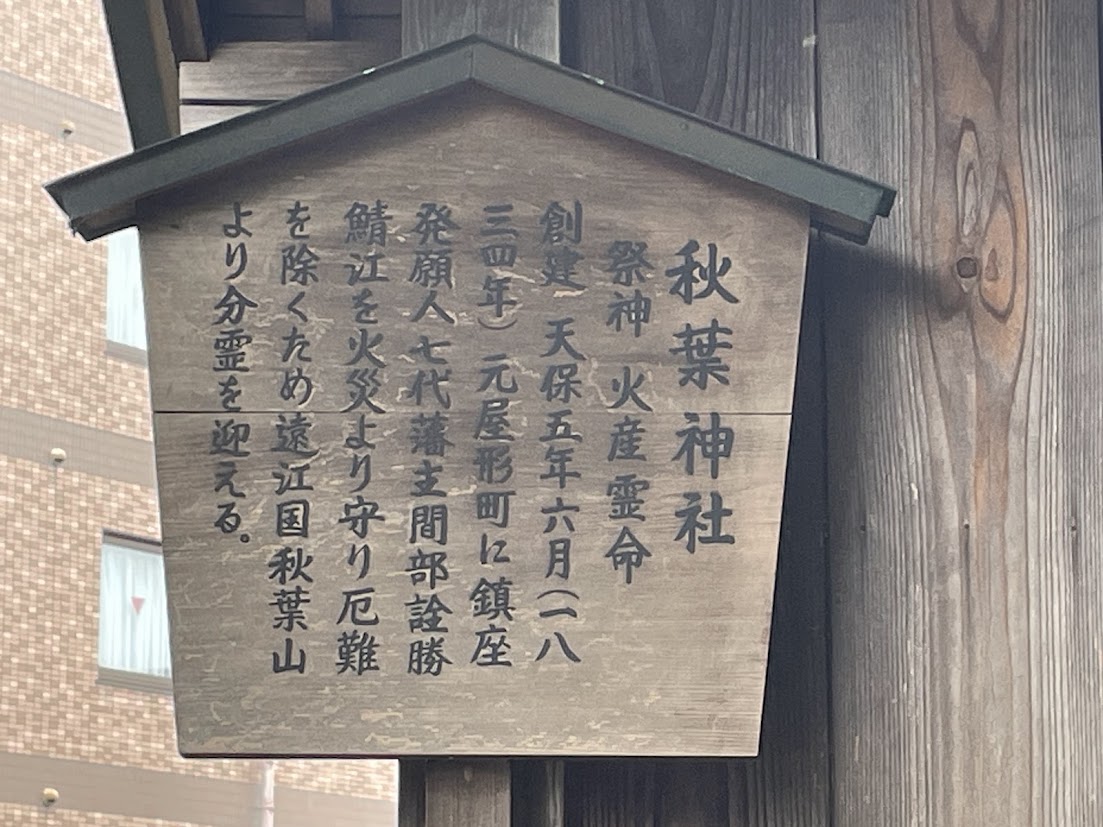 秋葉神社
祭神 火産霊命
創建 天保五年六月(一八
三四年)元屋形町に鎮座
発願人七代藩主間部詮勝
鯖江を火災より守り厄難
を除くため遠江国秋葉山
より分霊を迎える。